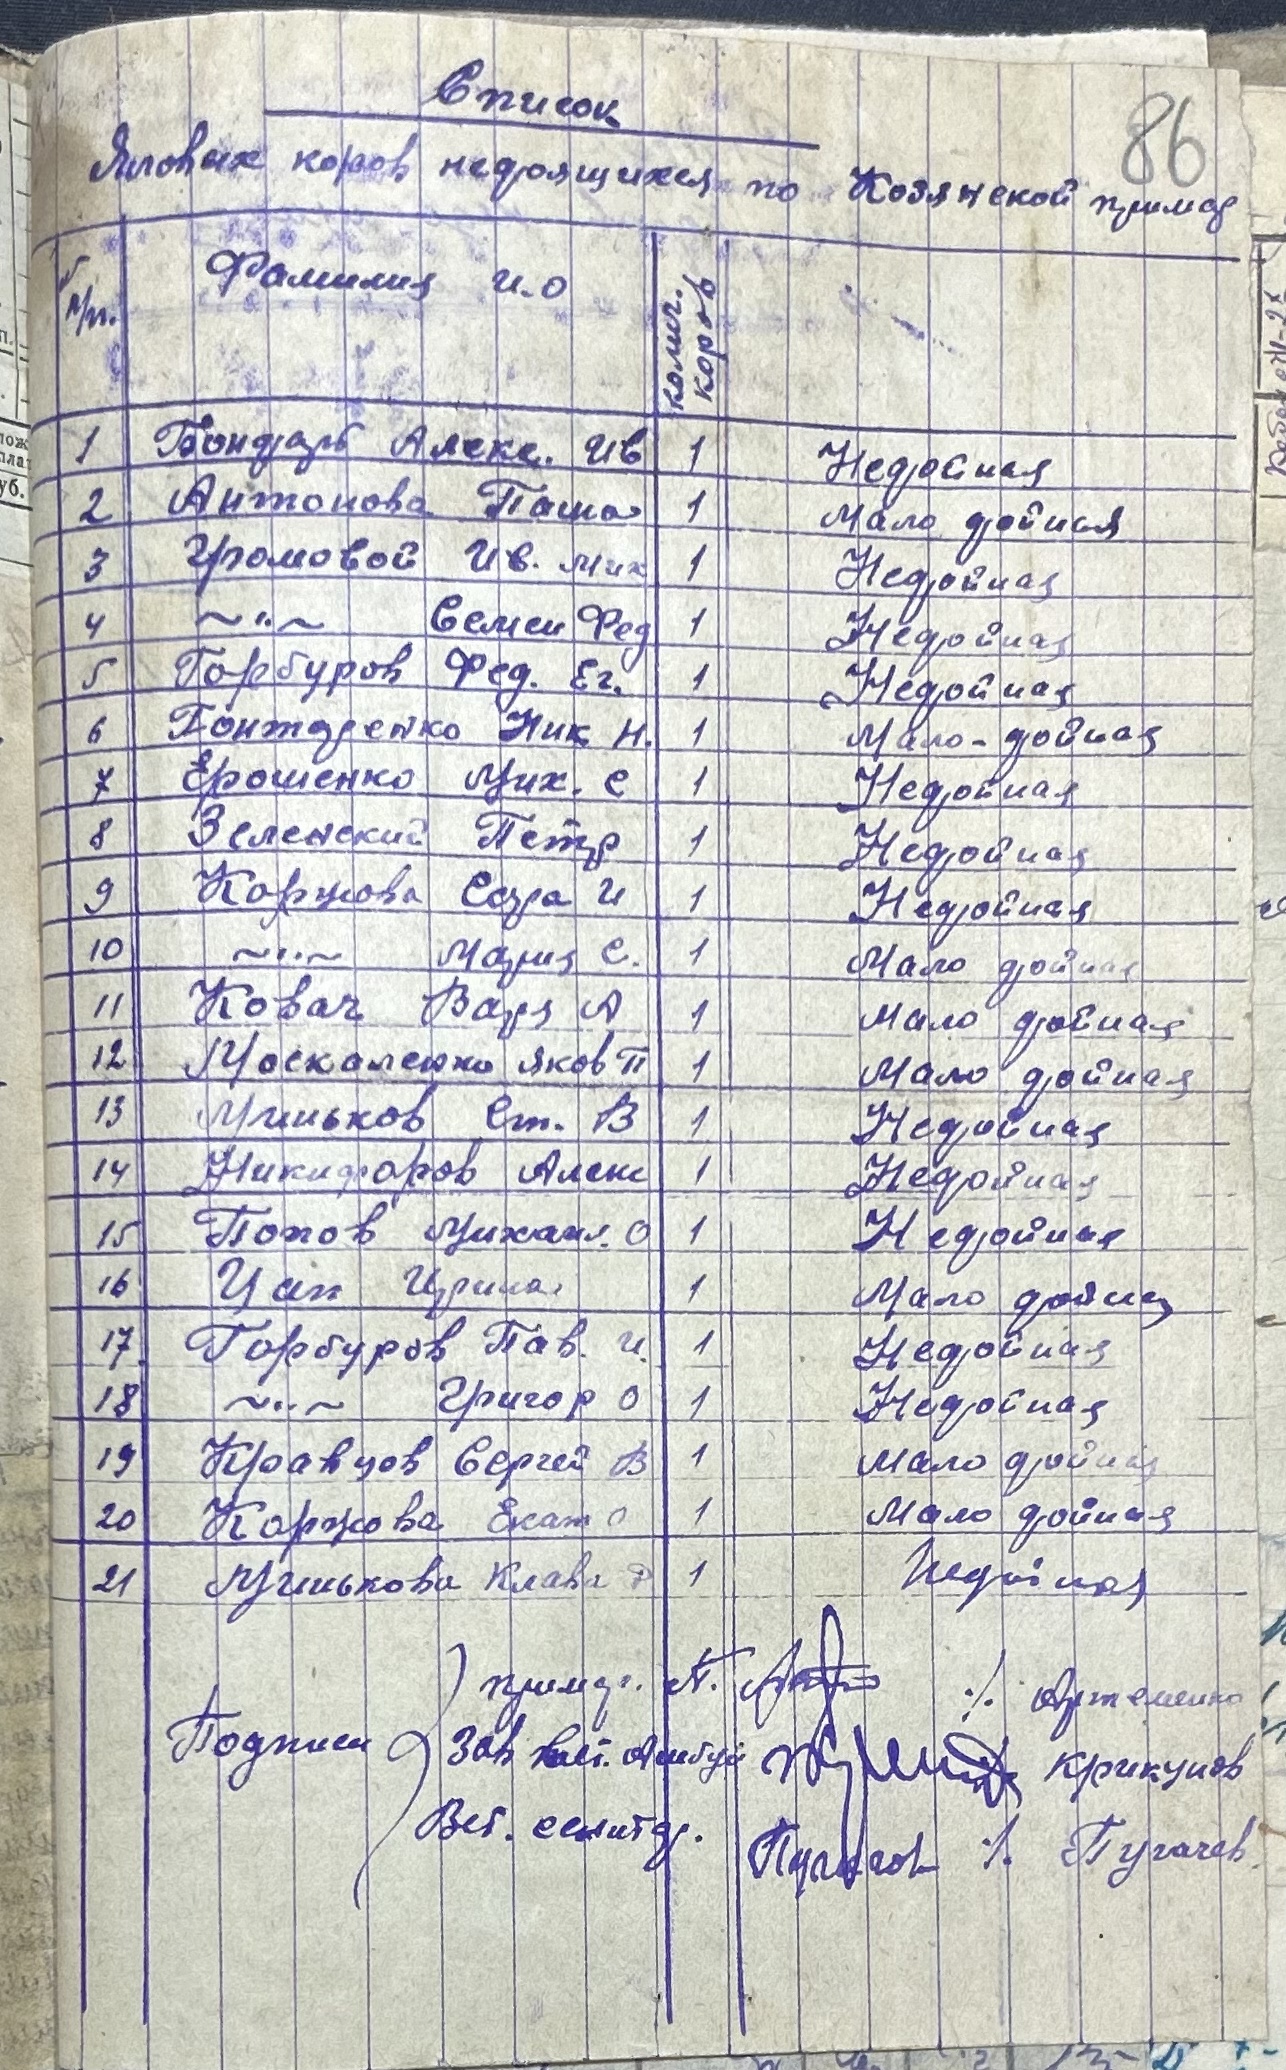 86
Список
Яловых коров недоящихся по Козянской примар
№ п/п. Фамилия и.о колич. коров
1 Бондарь Алекс. Ив 1 Недойная
2 Антонова Паша 1 Мало дойная
3 Громовой Ив. Мих 1 Недойная
4 ~"~ Семен Фед 1 Недойная
5 Горбуров Фед. Ег. 1 Недойная
6 Гонтаренко Ник Н. 1 Мало-дойная
7 Ерошенко Мих. С 1 Недойная
8 Зеленский Петр 1 Недойная
9 Коржова Сара И 1 Недойная
10 ~"~ Мария С. 1 Мало дойная
11 Ковач Варя А 1 Мало дойная
12 Москаленко Яков П 1 Мало дойная
13 Миньков Ст. В 1 Недойная
14 Никифоров Алекс 1 Недойная
15 Попов Михаил. О 1 Недойная
16 Цап Ирина 1 Мало дойная
17. Горбуров Пав. И. 1 Недойная
18 ~"~ Григор О 1 Недойная
19 Кравцов Сергей В 1 Мало дойная
20 Коржова Екат О 1 Мало дойная
21 Минькова Клава Ф 1 Недойная
Подписи
примар. А. ./. Артеменко
Зав вет. Амбул Крикунов
Вет. санитар. Пугачов ./. Пугачев